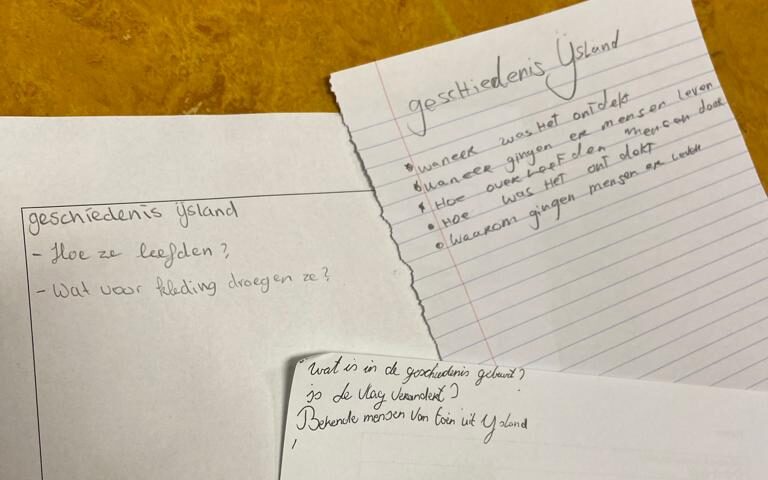 geschiedenis ijsland
- Hoe ze leefden?
- Wat voor kleding droegen ze?
geschiedenis Ijsland
• waneer was Het ontdekt
• waneer gingen er mensen leven
• Hoe overleefden mensen daar
• Hoe was Het ontdekt
• Waarom gingen mensen er leven
Wat is in de geschiedenis gebeurt?
is de vlag verandert?
Bekende mensen van toen uit Ijsland